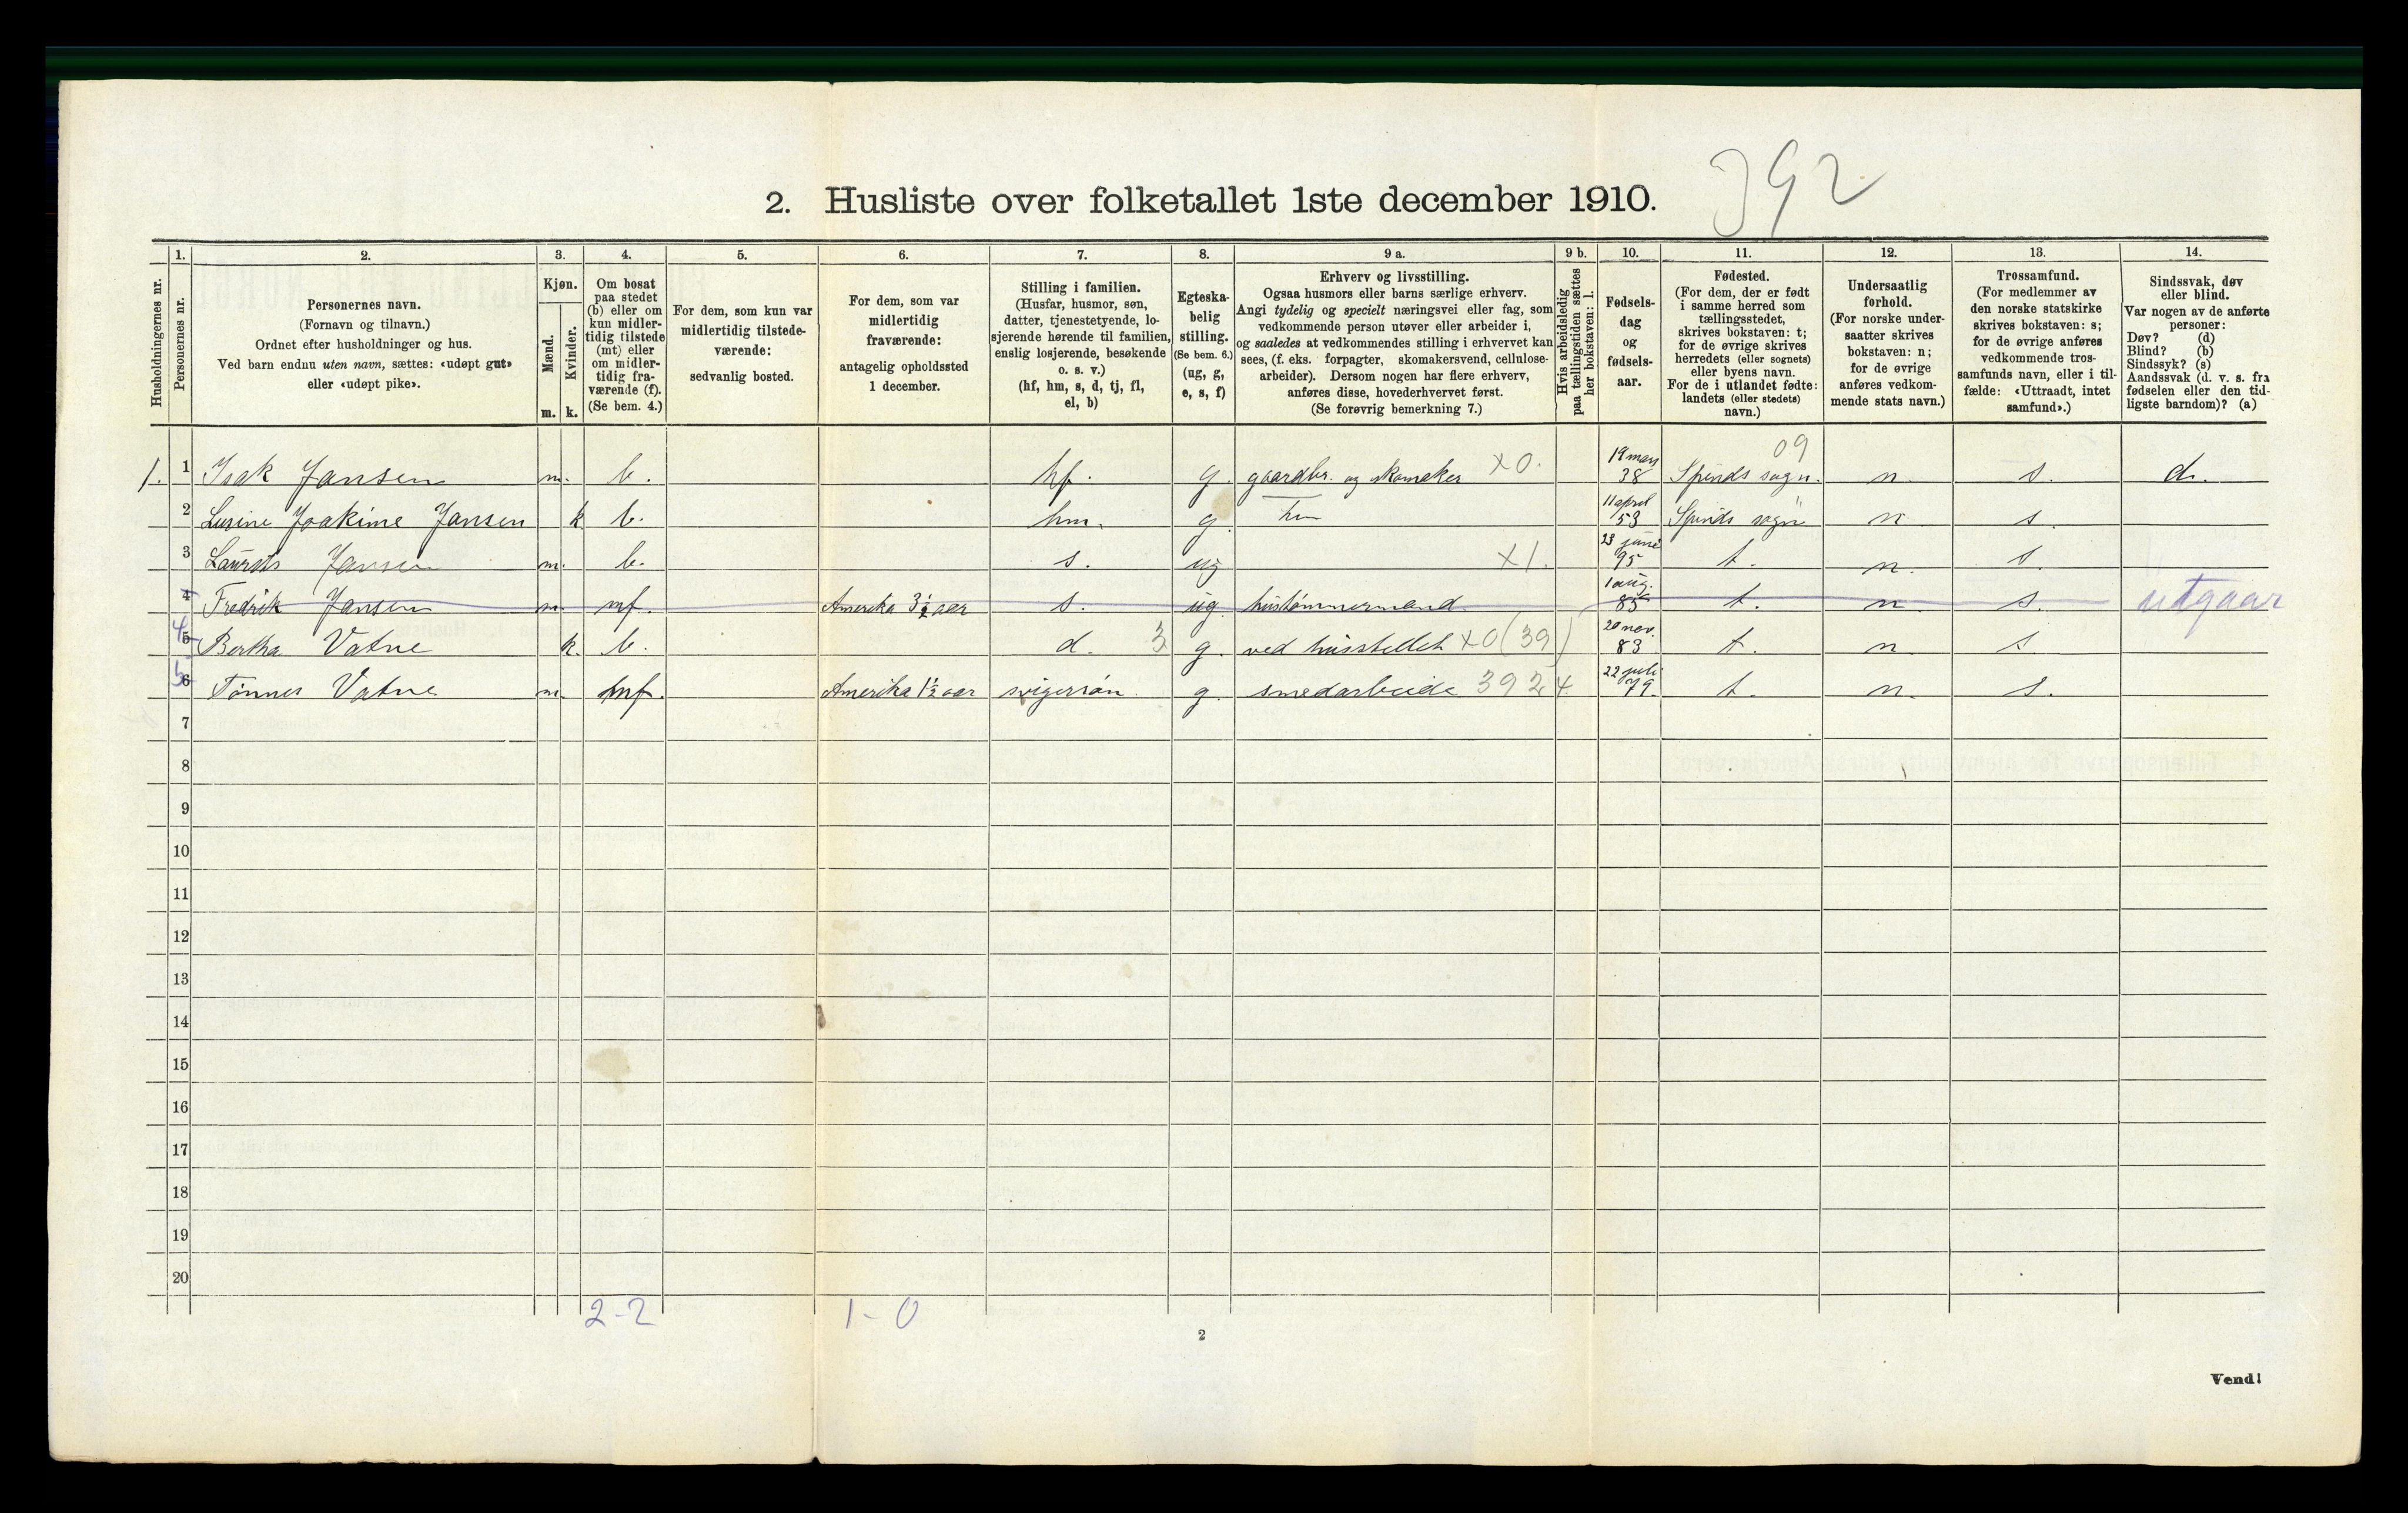 392
2. Husliste over folketallet 1ste december 1910.
Husholdningernes nr.
1.
Personernes nr.
2.
Personernes navn.
(Fornavn og tilnavn.)
Ordnet efter husholdninger og hus.
Ved barn endnu uten navn, sættes: «udøpt gut»
eller «udøpt pike».
3.
Kjøn.
Mænd.
Kvinder.
m. k.
4.
Om bosat
paa stedet
(b) eller om
kun midler-
tidig tilstede
(mt) eller
om midler-
tidig fra-
værende (f).
(Se bem. 4.)
5.
For dem, som kun var
midlertidig tilstede-
værende:
sedvanlig bosted.
6.
For dem, som var
midlertidig
fraværende:
antagelig opholdssted
1 december.
7.
Stilling i familien.
(Husfar, husmor, søn,
datter, tjenestetyende, lo-
sjerende hørende til familien,
enslig losjerende, besøkende
o. s. v.)
(hf, hm, s, d, tj, fl,
el, b)
8.
Egteska-
belig
stilling.
(Se bem. 6.)
(ug, g,
e, s, f)
9 a.
Erhverv og livsstilling.
Ogsaa husmors eller barns særlige erhverv.
Angi tydelig og specielt næringsvei eller fag, som
vedkommende person utøver eller arbeider i,
og saaledes at vedkommendes stilling i erhvervet kan
sees, (f. eks. forpagter, skomakersvend, cellulose-
arbeider). Dersom nogen har flere erhverv,
anføres disse, hovederhvervet først.
(Se forøvrig bemerkning 7.)
9 b.
Hvis arbeidsledig
paa tællingstiden sættes
her bokstaven: l.
10.
Fødsels-
dag
og
fødsels-
aar.
11.
Fødested.
(For dem, der er født
i samme herred som
tællingsstedet,
skrives bokstaven: t;
for de øvrige skrives
herredets (eller sognets)
eller byens navn.
For de i utlandet fødte:
landets (eller stedets)
navn.)
12.
Undersaatlig
forhold.
(For norske under-
saatter skrives
bokstaven: n;
for de øvrige
anføres vedkom-
mende stats navn.)
13.
Trossamfund.
(For medlemmer av
den norske statskirke
skrives bokstaven: s;
for de øvrige anføres
vedkommende tros-
samfunds navn, eller i til-
fælde: «Uttraadt, intet
samfund».)
14.
Sindssvak, døv
eller blind.
Var nogen av de anførte
personer:
Døv? (d)
Blind? (b)
Sindssyk? (s)
Aandssvak (d. v. s. fra
fødselen eller den tid-
ligste barndom)? (a)
09
1. 1 Isak Jansen m. b. hf. g. gaardbr. og skomaker x0. 19 mars 38 Spinds sogn. n. s. d.
2 Lusine Joakime Jansen k b. hm. g. hm 11 april 53 Spinds sogn n s.
3 Laurits Jansen m. b. s. ug x1. 23 juni 95 t. n. s.
4 Fredrik Jansen m. mf. Amerika 3½ aar s. ug. hustømmermand 1 aug. 85 t. n s. utgaar
4 5 Bertha Vatne k. b. d. 3 g. ved husstellet x0 (39) 20 nov. 83 t. n. s.
5 6 Tønnes Vatne m. mf. Amerika 1½ aar svigersøn. g. smedarbeide 392 4 22 juli 79. t. n. s.
7
8
9
10
11
12
13
14
15
16
17
18
19
20
2-2 1-0
2
Vend!